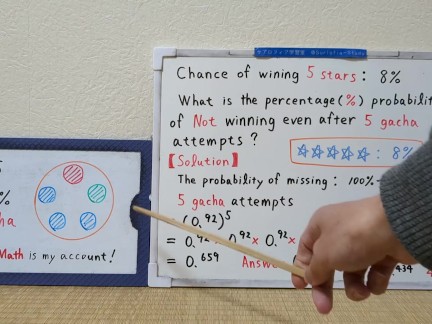 Chance of wining 5 stars : 8%
What is the percentage(%) probabilit
of Not winning even after 5 gacha
attempts ?
☆☆☆☆☆ : 8%
【Solution】
The probability of missing : 100%-
5 gacha attempts
(0.92)5
= 0.92 × 0.92 × 0.92 ×
= 0.659
Answ
434
%
ha
Math is my account!